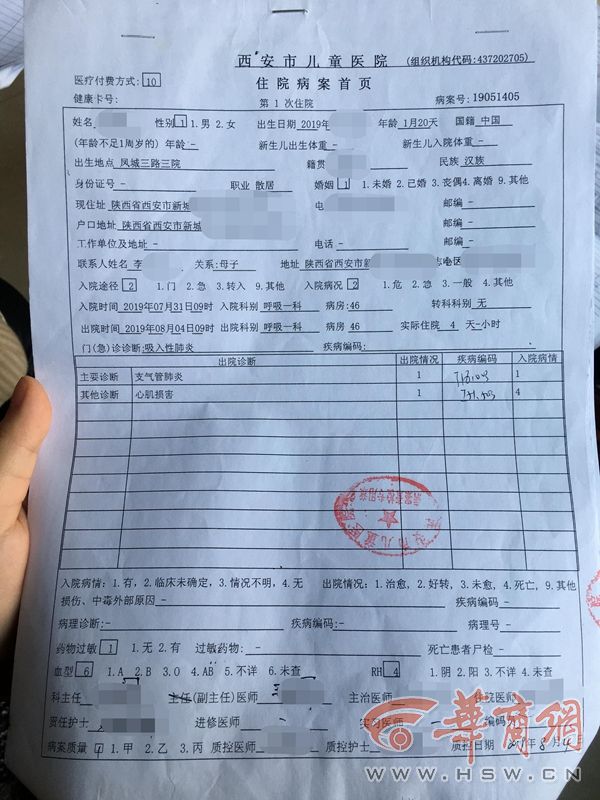 西安市儿童医院 (组织机构代码:437202705)
医疗付费方式:10 住院病案首页
健康卡号: 第 1 次住院 病案号:19051405
姓名 性别 1 1.男 2.女 出生日期 2019年 年龄 1月20天 国籍 中国
(年龄不足1周岁的) 年龄 - 新生儿出生体重 - 新生儿入院体重 -
出生地点 凤城三路三院 籍贯 民族 汉族
身份证号 - 职业 散居 婚姻 1 1.未婚 2.已婚 3.丧偶 4.离婚 9.其他
现住址 陕西省西安市新城 电 邮编 -
户口地址 陕西省西安市新城 邮编 -
工作单位及地址 - 电话 - 邮编 -
联系人姓名 李 关系:母子 地址 陕西省西安市新
入院途径 2 1.门 2.急 3.转入 9.其他 入院病况 2 1.危 2.急 3.一般 4.其他
入院时间 2019年07月31日09时 入院科别 呼吸一科 病房:46 转科科别 无
出院时间 2019年08月04日09时 出院科别 呼吸一科 病房 46 实际住院 4 天-小时
门(急)诊诊断:吸入性肺炎 疾病编码:
出院诊断 出院情况 疾病编码 入院病情
主要诊断 支气管肺炎 1 1
其他诊断 心肌损害 1 4
西安市儿童医院
入院病情:1.有, 2.临床未确定, 3.情况不明, 4.无 出院情况:1.治愈, 2.好转, 3.未愈, 4.死亡, 9.其他
损伤、中毒外部原因 - 疾病编码 -
病理诊断: - 疾病编码 - 病理号 -
药物过敏 1 1.无 2.有 过敏药物: - 死亡患者尸检 -
血型 6 1.A 2.B 3.O 4.AB 5.不详 6.未查 RH 4 1.阴 2.阳 3.不详 4.未查
科主任 主任(副主任)医师 主治医师 住院医师
责任护士 进修医师 实习医师 编码员
病案质量 1 1.甲 2.乙 3.丙 质控医师 质控护士 质控日期 年8月4日
华商网
WWW.HSW.CN